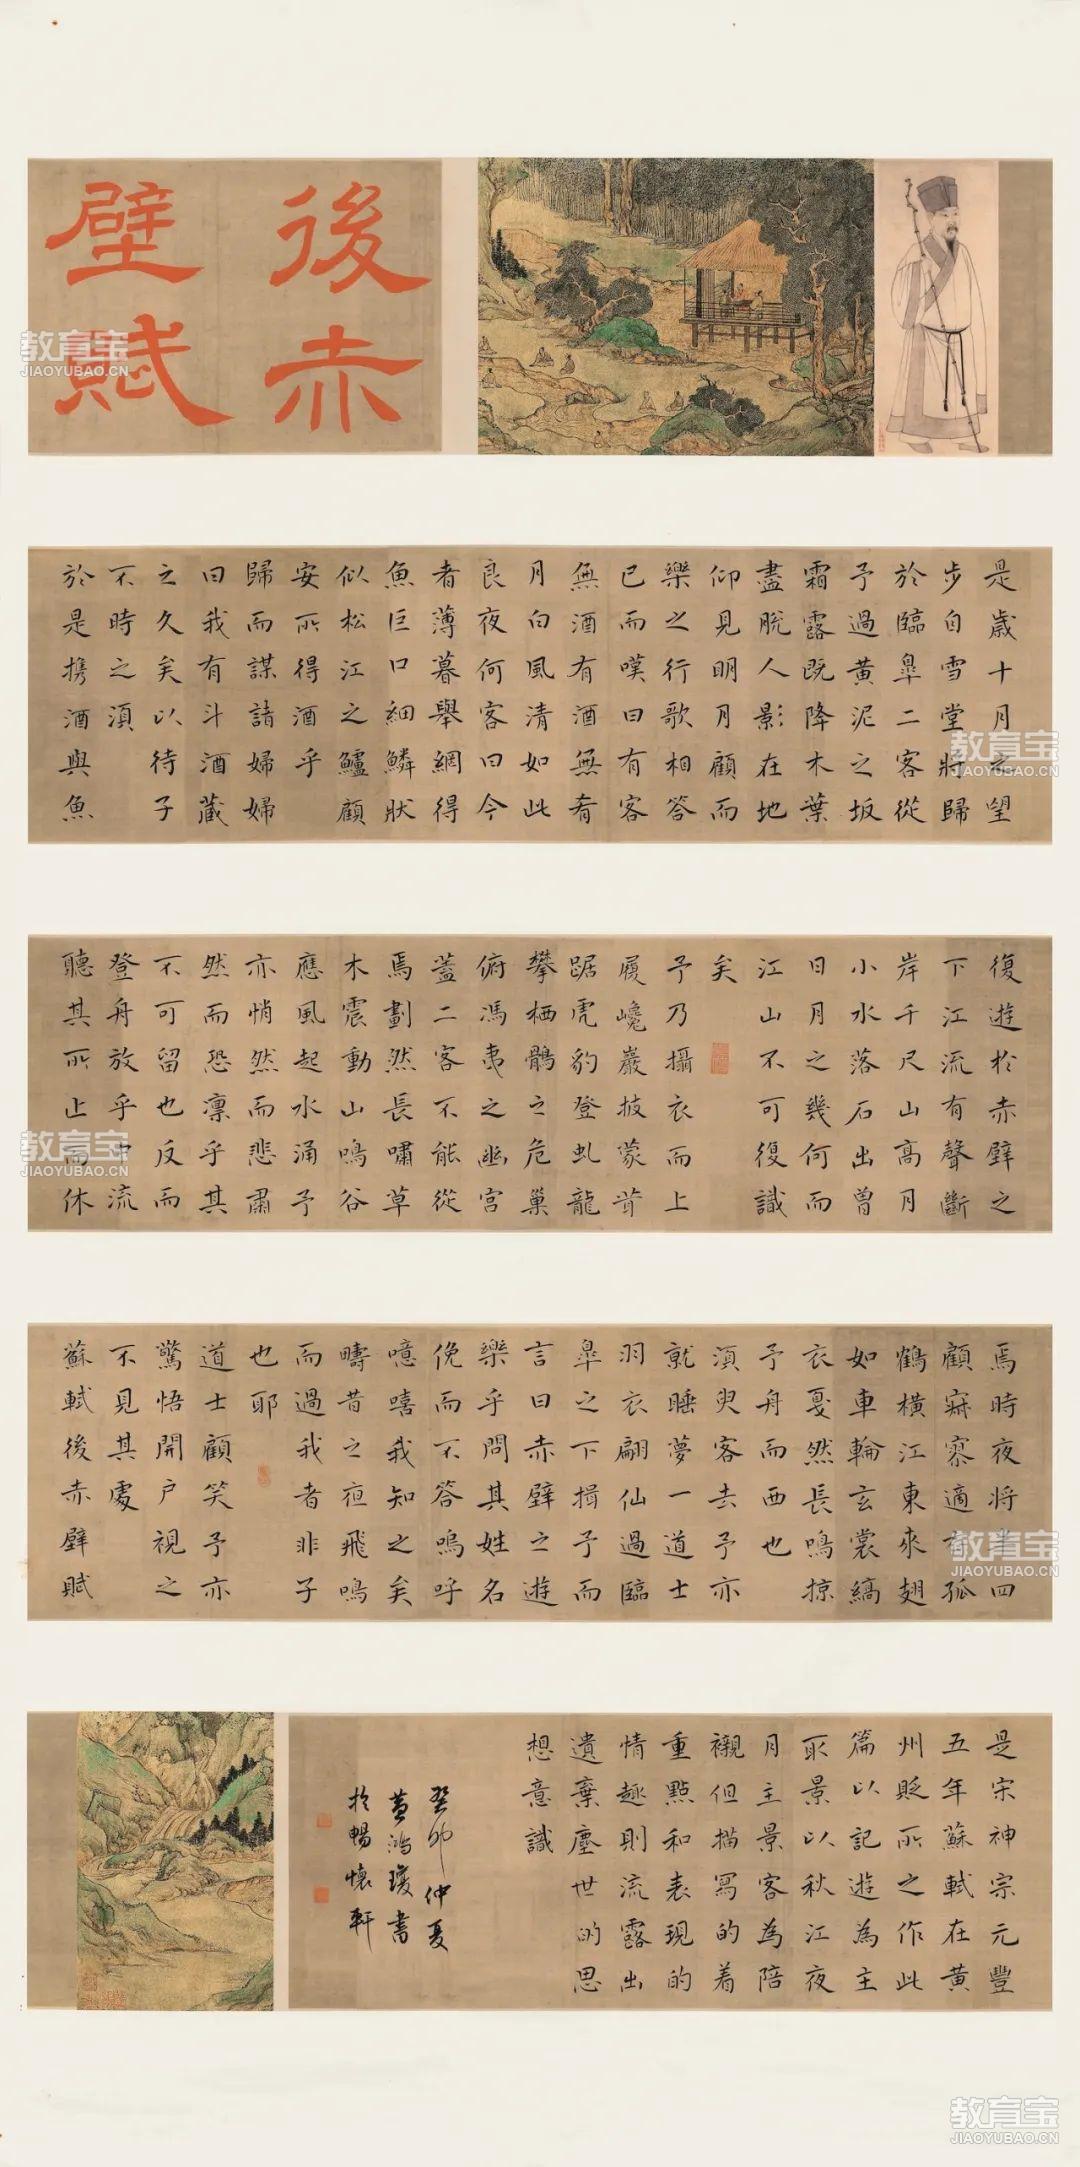 後赤
壁賦
是歲十月之望
步自雪堂將歸
於臨臯二客從
予過黃泥之坂
霜露既降木葉
盡脫人影在地
仰見明月顧而
樂之行歌相答
已而嘆曰有客
無酒有酒無肴
月白風清如此
良夜何客曰今
者薄暮舉網得
魚巨口細鱗狀
似松江之鱸顧
安所得酒乎
歸而謀諸婦婦
曰我有斗酒藏
之久矣以待子
不時之須
於是携酒與魚
復遊於赤壁之
下江流有聲斷
岸千尺山高月
小水落石出曾
日月之幾何而
江山不可復識
矣
予乃攝衣而上
履巉巖披蒙茸
踞虎豹登虬龍
攀栖鶻之危巢
俯馮夷之幽宮
蓋二客不能從
焉劃然長嘯草
木震動山鳴谷
應風起水涌予
亦悄然而悲肅
然而恐凛乎其
不可留也反而
登舟放乎中流
聽其所止而休
焉時夜將半四
顧寂寥適有孤
鶴橫江東來翅
如車輪玄裳縞
衣戛然長鳴掠
予舟而西也
須臾客去予亦
就睡夢一道士
羽衣翩仙過臨
臯之下揖予而
言曰赤壁之遊
樂乎問其姓名
俛而不答嗚呼
噫嘻我知之矣
疇昔之夜飛鳴
而過我者非子
也耶
道士顧笑予亦
驚悟開户視之
不見其處
蘇軾後赤壁賦
是宋神宗元豐
五年蘇軾在黃
州貶所之作此
篇以記遊為主
取景以秋江夜
月主景客為陪
襯但描寫的着
重點和表現的
情趣則流露出
遺棄塵世的思
想意識
癸卯仲夏
黃鴻瓊書
於暢懷軒
教育宝
JIAOYUBAO.CN
教育宝
JIAOYUBAO.CN
教育宝
JIAOYUBAO.CN
教育宝
JIAOYUBAO.CN
教育宝
JIAOYUBAO.CN